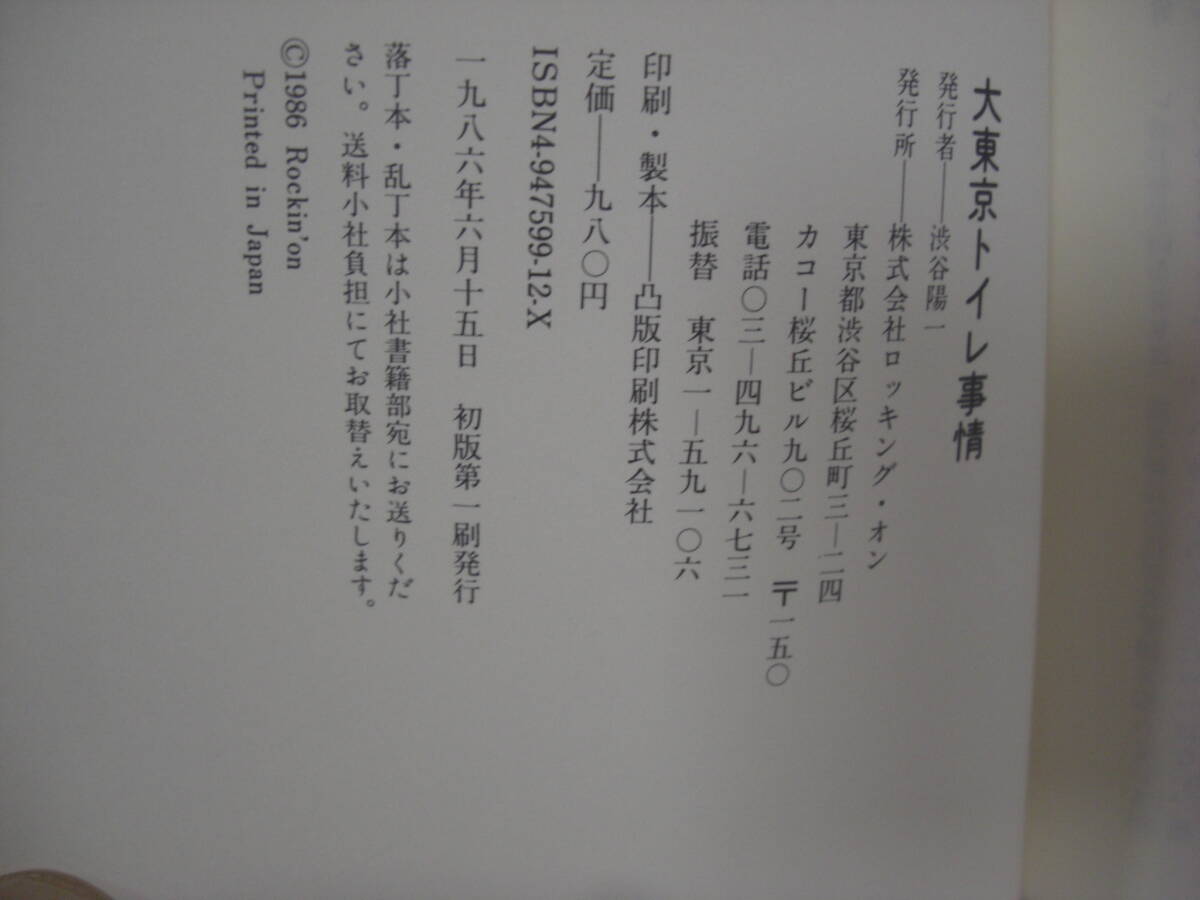 大東京トイレ事情
発行者――渋谷陽一
発行所――株式会社ロッキング・オン
東京都渋谷区桜丘町三―二四
カコー桜丘ビル九〇二号 〒一五〇
電話〇三―四九六―六七三一
振替 東京一―五九一〇六
印刷・製本――凸版印刷株式会社
定価――九八〇円
ISBN4-947599-12-X
一九八六年六月十五日 初版第一刷発行
落丁本・乱丁本は小社書籍部宛にお送りくだ
さい。送料小社負担にてお取替えいたします。
©1986 Rockin'on
Printed in Japan